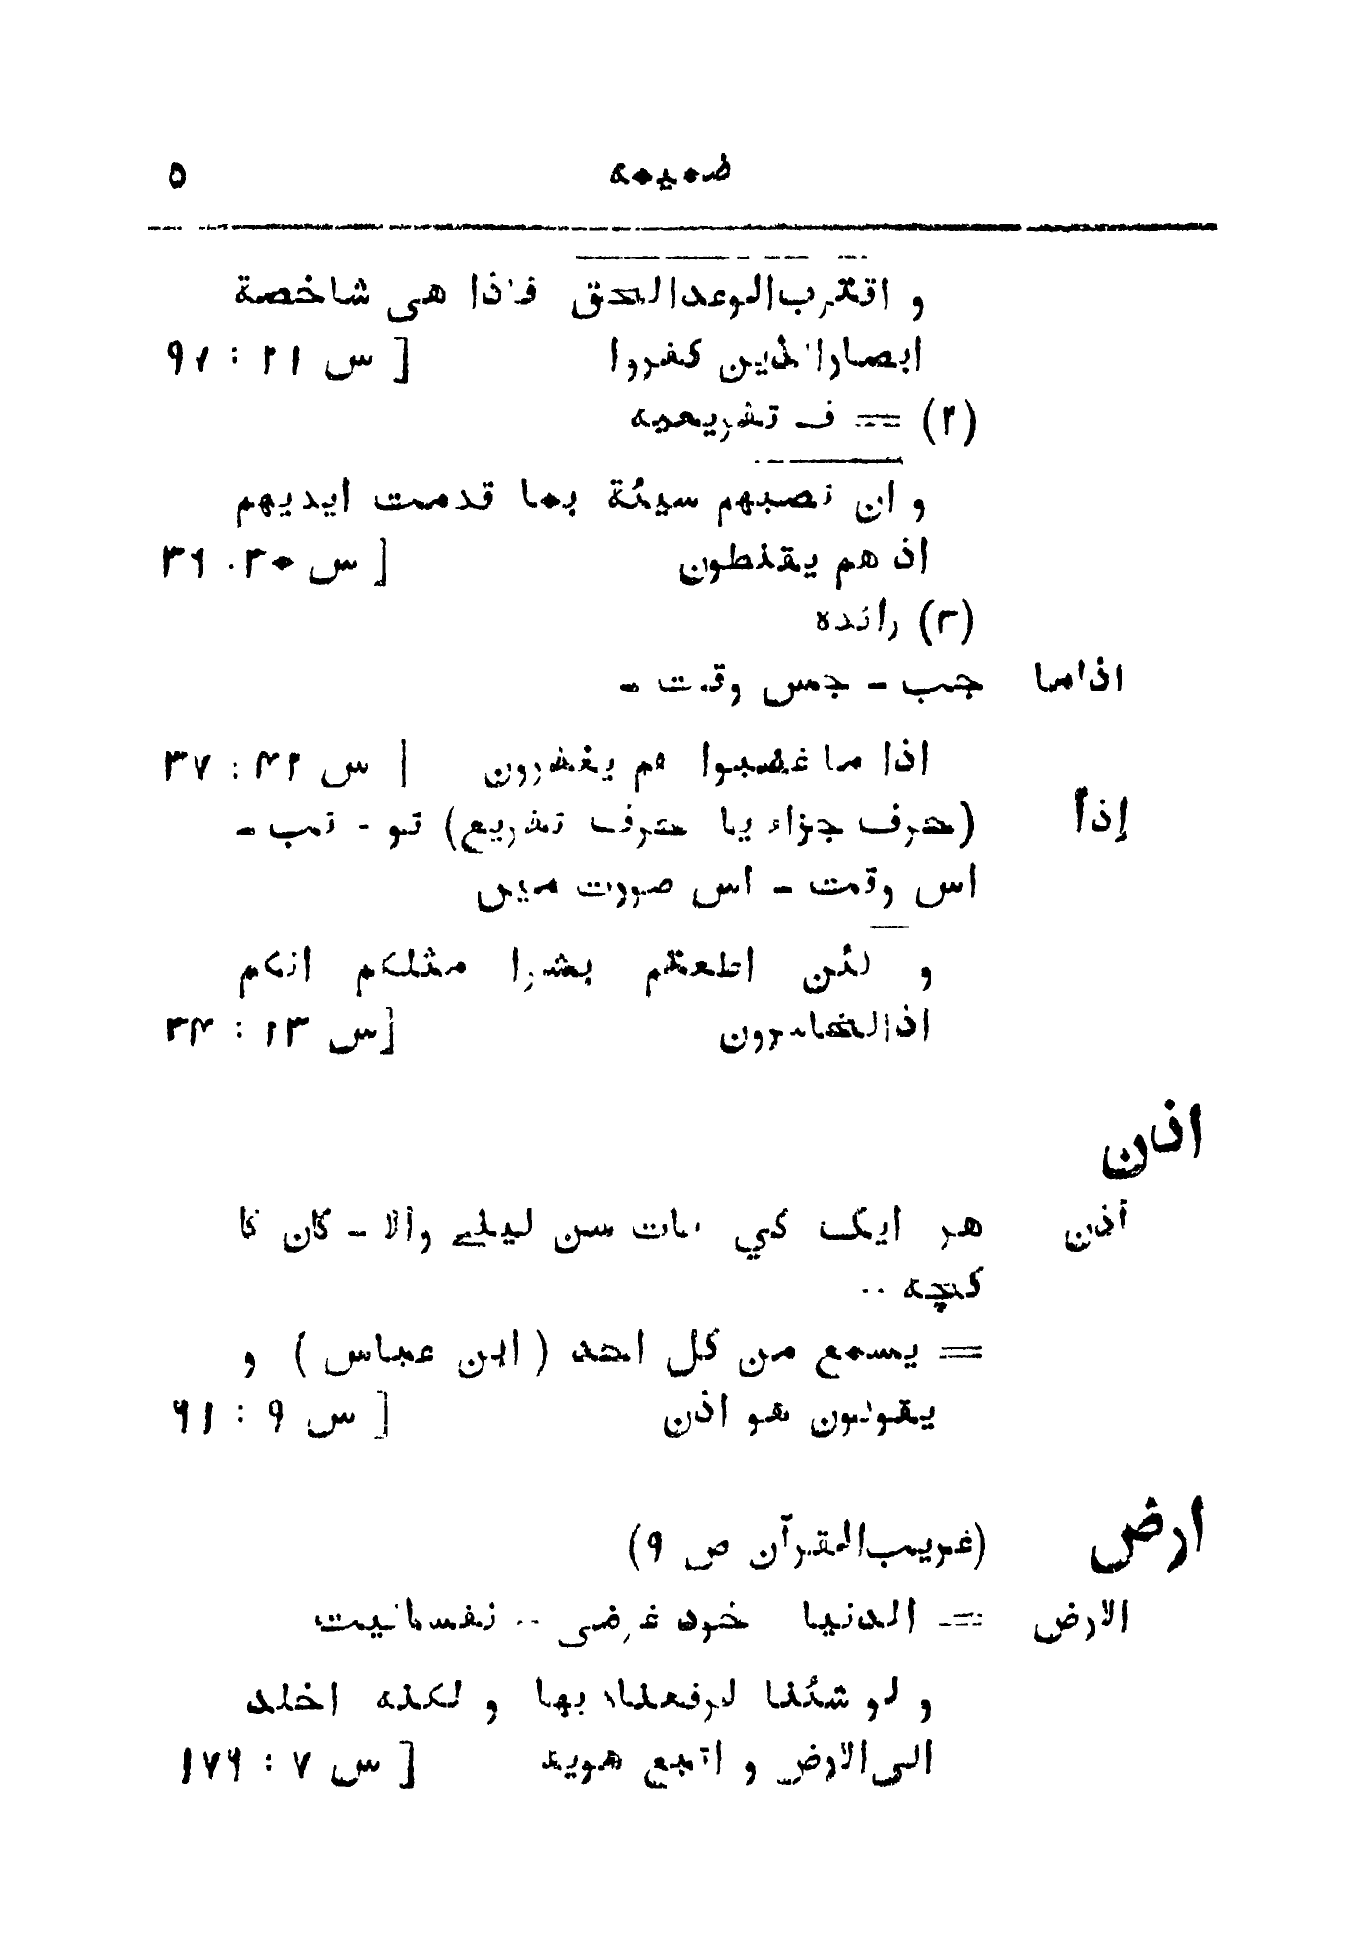 ضمیمه ۵
و اقترب الوعد الحق فاذا هی شاخصة
ابصار الذین کفروا [ س ۲۱ : ۹۷
(۲) = ف تفریعیه
و ان تصبهم سیئة بما قدمت ایدیهم
اذ هم یقنطون [ س ۳۰ : ۳۶
(۳) زائده
اذاما جب ـ جس وقت ـ
اذا ما غضبوا هم یغفرون [ س ۴۲ : ۳۷
إذاً (حرف جزاء یا حرف تفریع) تو - تب ـ
اس وقت ـ اس صورت میں
و لئن اطعتم بشرا مثلکم انکم
اذالخاسرون [س ۲۳ : ۳۴
اذن
أذن هر ایک کي بات سن لینے والا ـ کان کا
کچه ..
= یسمع من کل احد ( ابن عباس ) و
یقولون هو اذن [ س ۹ : ۶۱
ارض (غریب القرآن ص ۹)
الارض = الدنیا خود غرضی .. نفسانیت
و لو شئنا لرفعناه بها و لکنه اخلد
الی الارض و اتبع هویه [ س ۷ : ۱۷۶